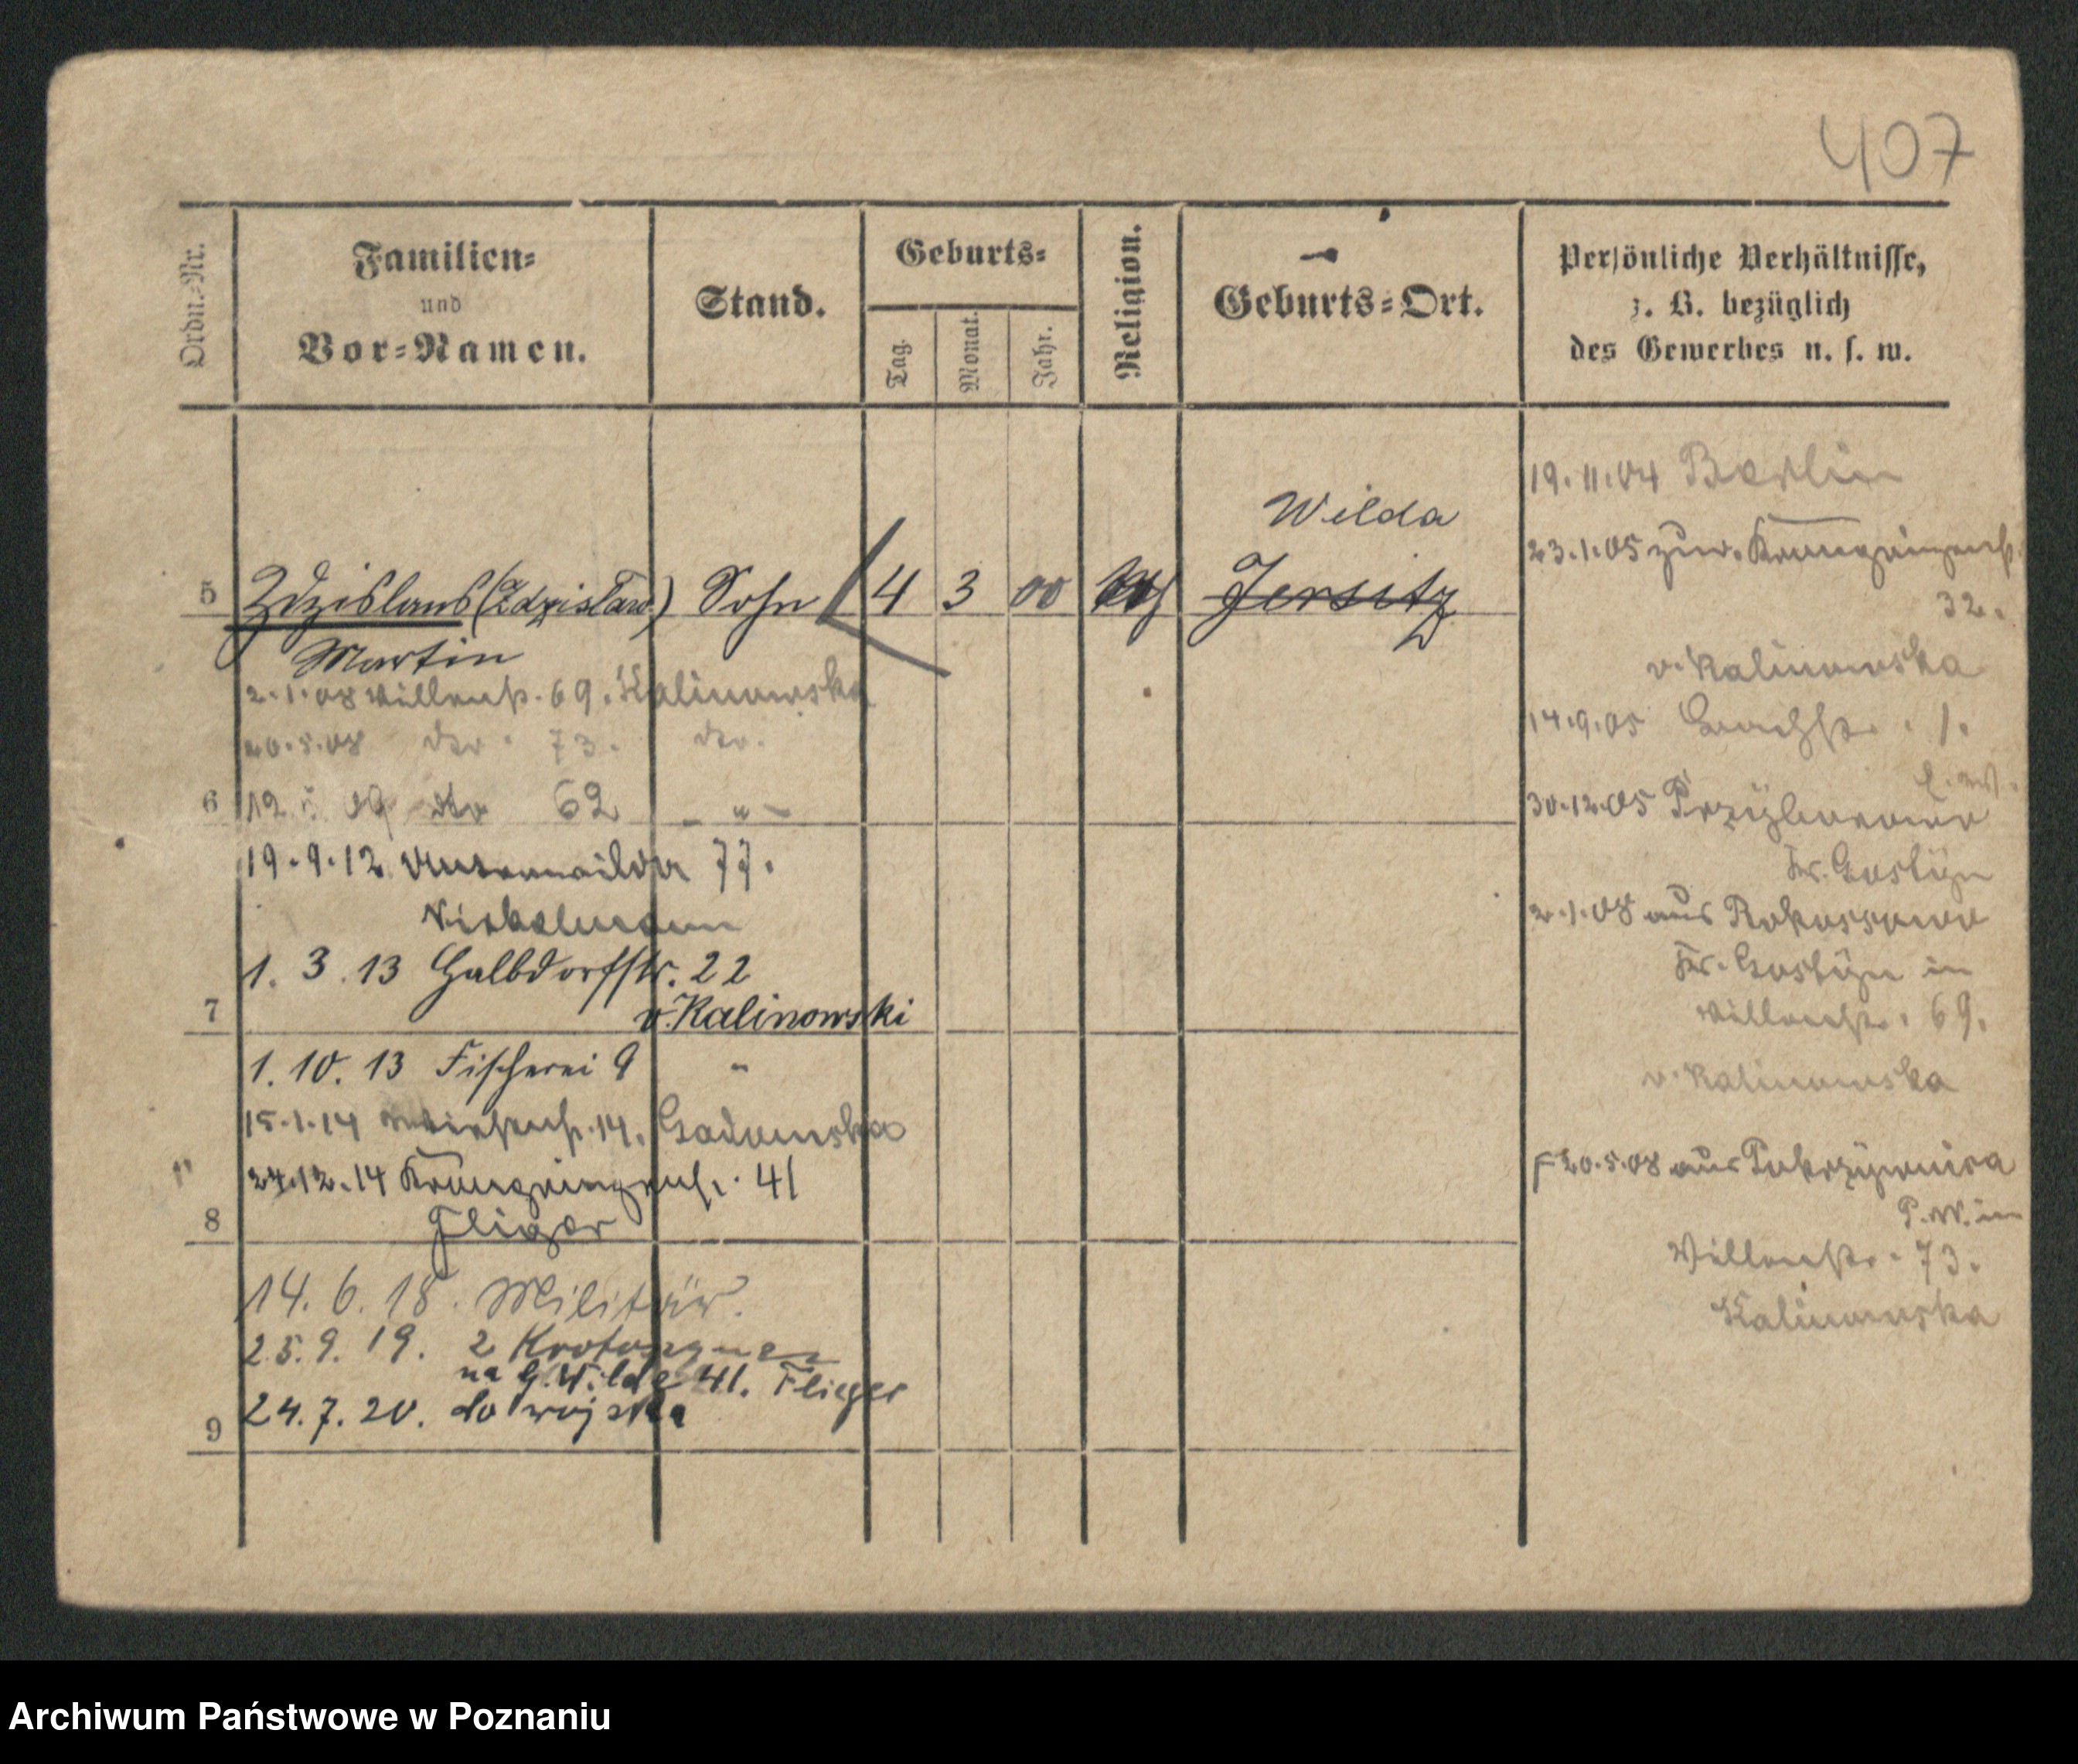 407
Ordn.-Nr.
Familien-
und
Vor-Namen.
Stand.
Geburts-
Tag.
Monat.
Jahr.
Religion.
Geburts-Ort.
Persönliche Verhältnisse,
z. B. bezüglich
des Gewerbes u. s. w.
5 Zdzislaus (Zdzisław) Sohn 4 3 00 Wilda
Jersitz
Martin
2.1.08 Villenstr. 69. Kalinowska
20.5.08 dto. 73. dto.
6 12 09 dto 62 - " -
19.9.12 Unterwilda 77.
1. 3. 13 Halbdorfstr. 22
7 v. Kalinowski
1. 10. 13 Fischerei 9 "
15.1.14 14. Gadomska
24.12.14 Kronprinzenstr. 41
8 Fliger
14. 6. 18. Militär.
25. 9. 19. z Krotoszyna
na G. Wildę 41. Flieger
9 24. 7. 20. do wojska
19.11.04 Berlin
23.1.05 zur. Kronprinzenstr.
32.
v. Kalinowska
14.9.05 1.
30.12.05
Kr. Gostyn
2.1.08 aus Rokossowo
Kr. Gostyn in
Villenstr. 69.
v. Kalinowska
20.5.08 aus Pokrzywnica
P. W. in
Villenstr. 73.
Kalinowska
Archiwum Państwowe w Poznaniu